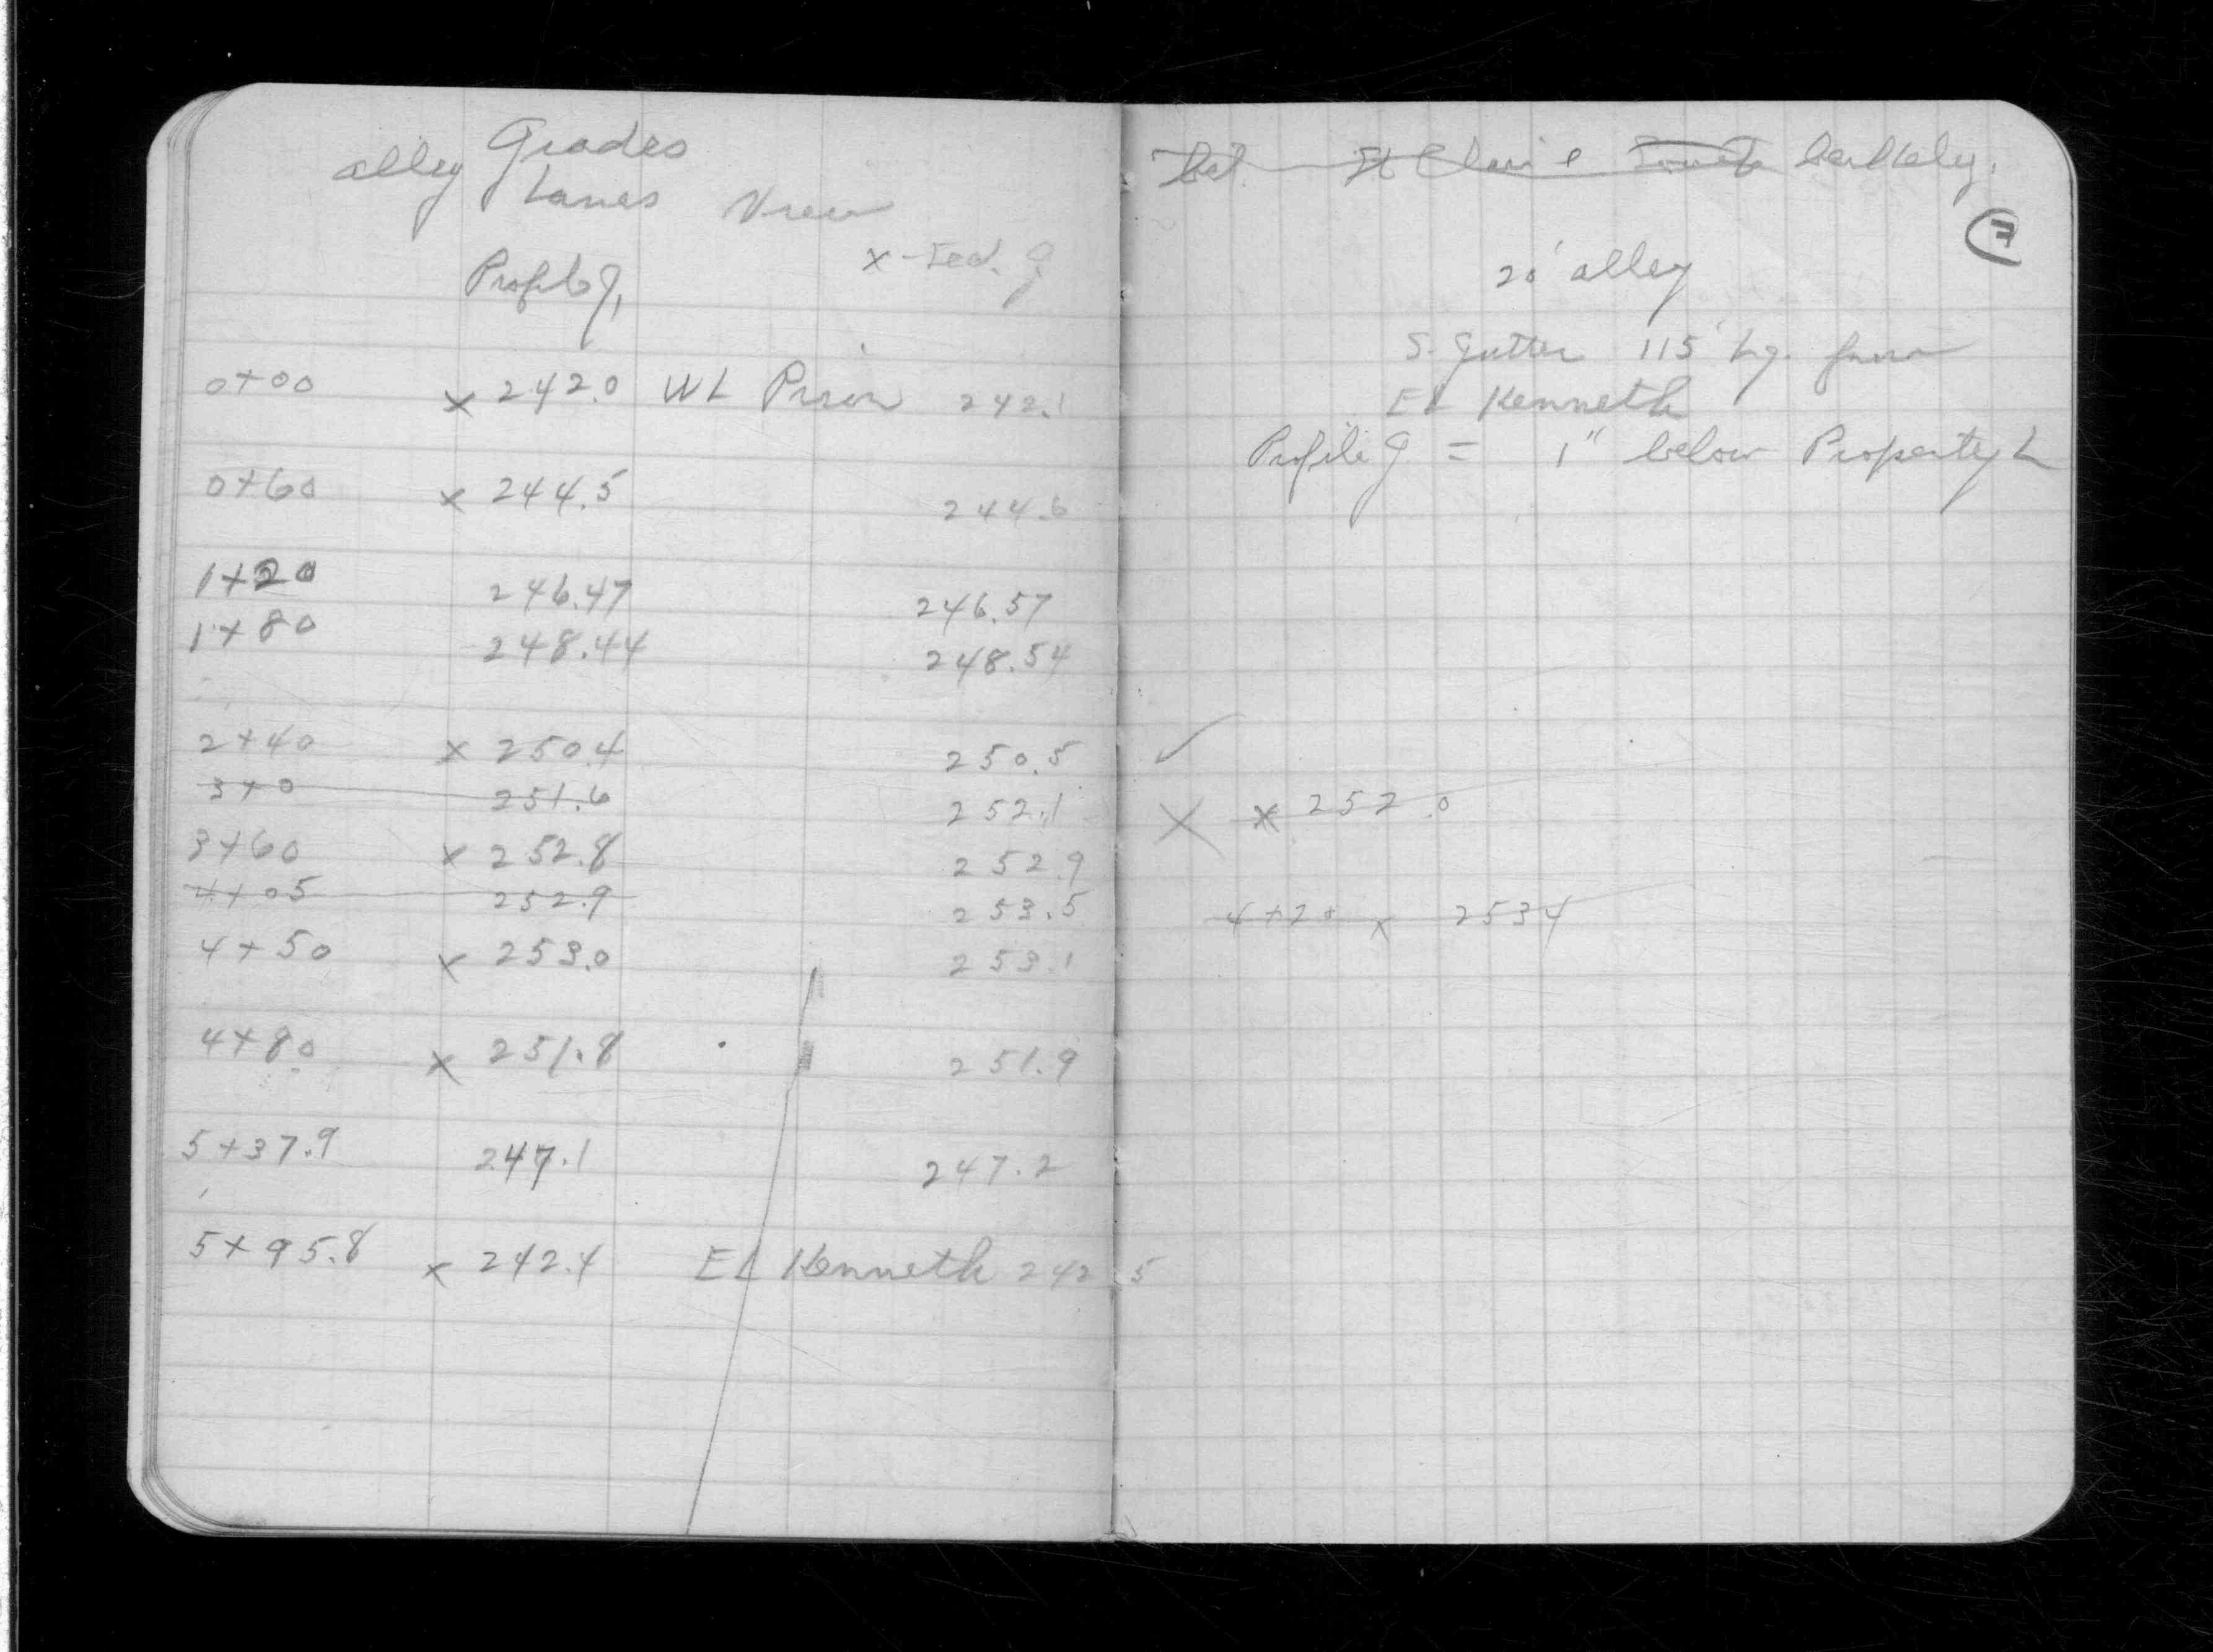 Grades
alley Lanes View
Profile G,
x-Fed. G
0+00 x 242.0 WL Prior 242.1
0+60 x 244.5 244.6
1+20 246.47 246.57
1+80 248.44 248.54
2+40 x 250.4 250.5
3+0 251.6 252.1
3+60 x 252.8 252.9
4+05 252.9 253.5
4+50 x 253.0 253.1
4+80 x 251.8 251.9
5+37.9 247.1 247.2
5+95.8 x 242.4 EL Kenneth 242.5
Bet. St Claire
7
20' alley
S. Gutter 115' Lg. from
EL Kenneth
Profile G = 1" below Property L
✓
X x 252.0
4+20 x 253 4